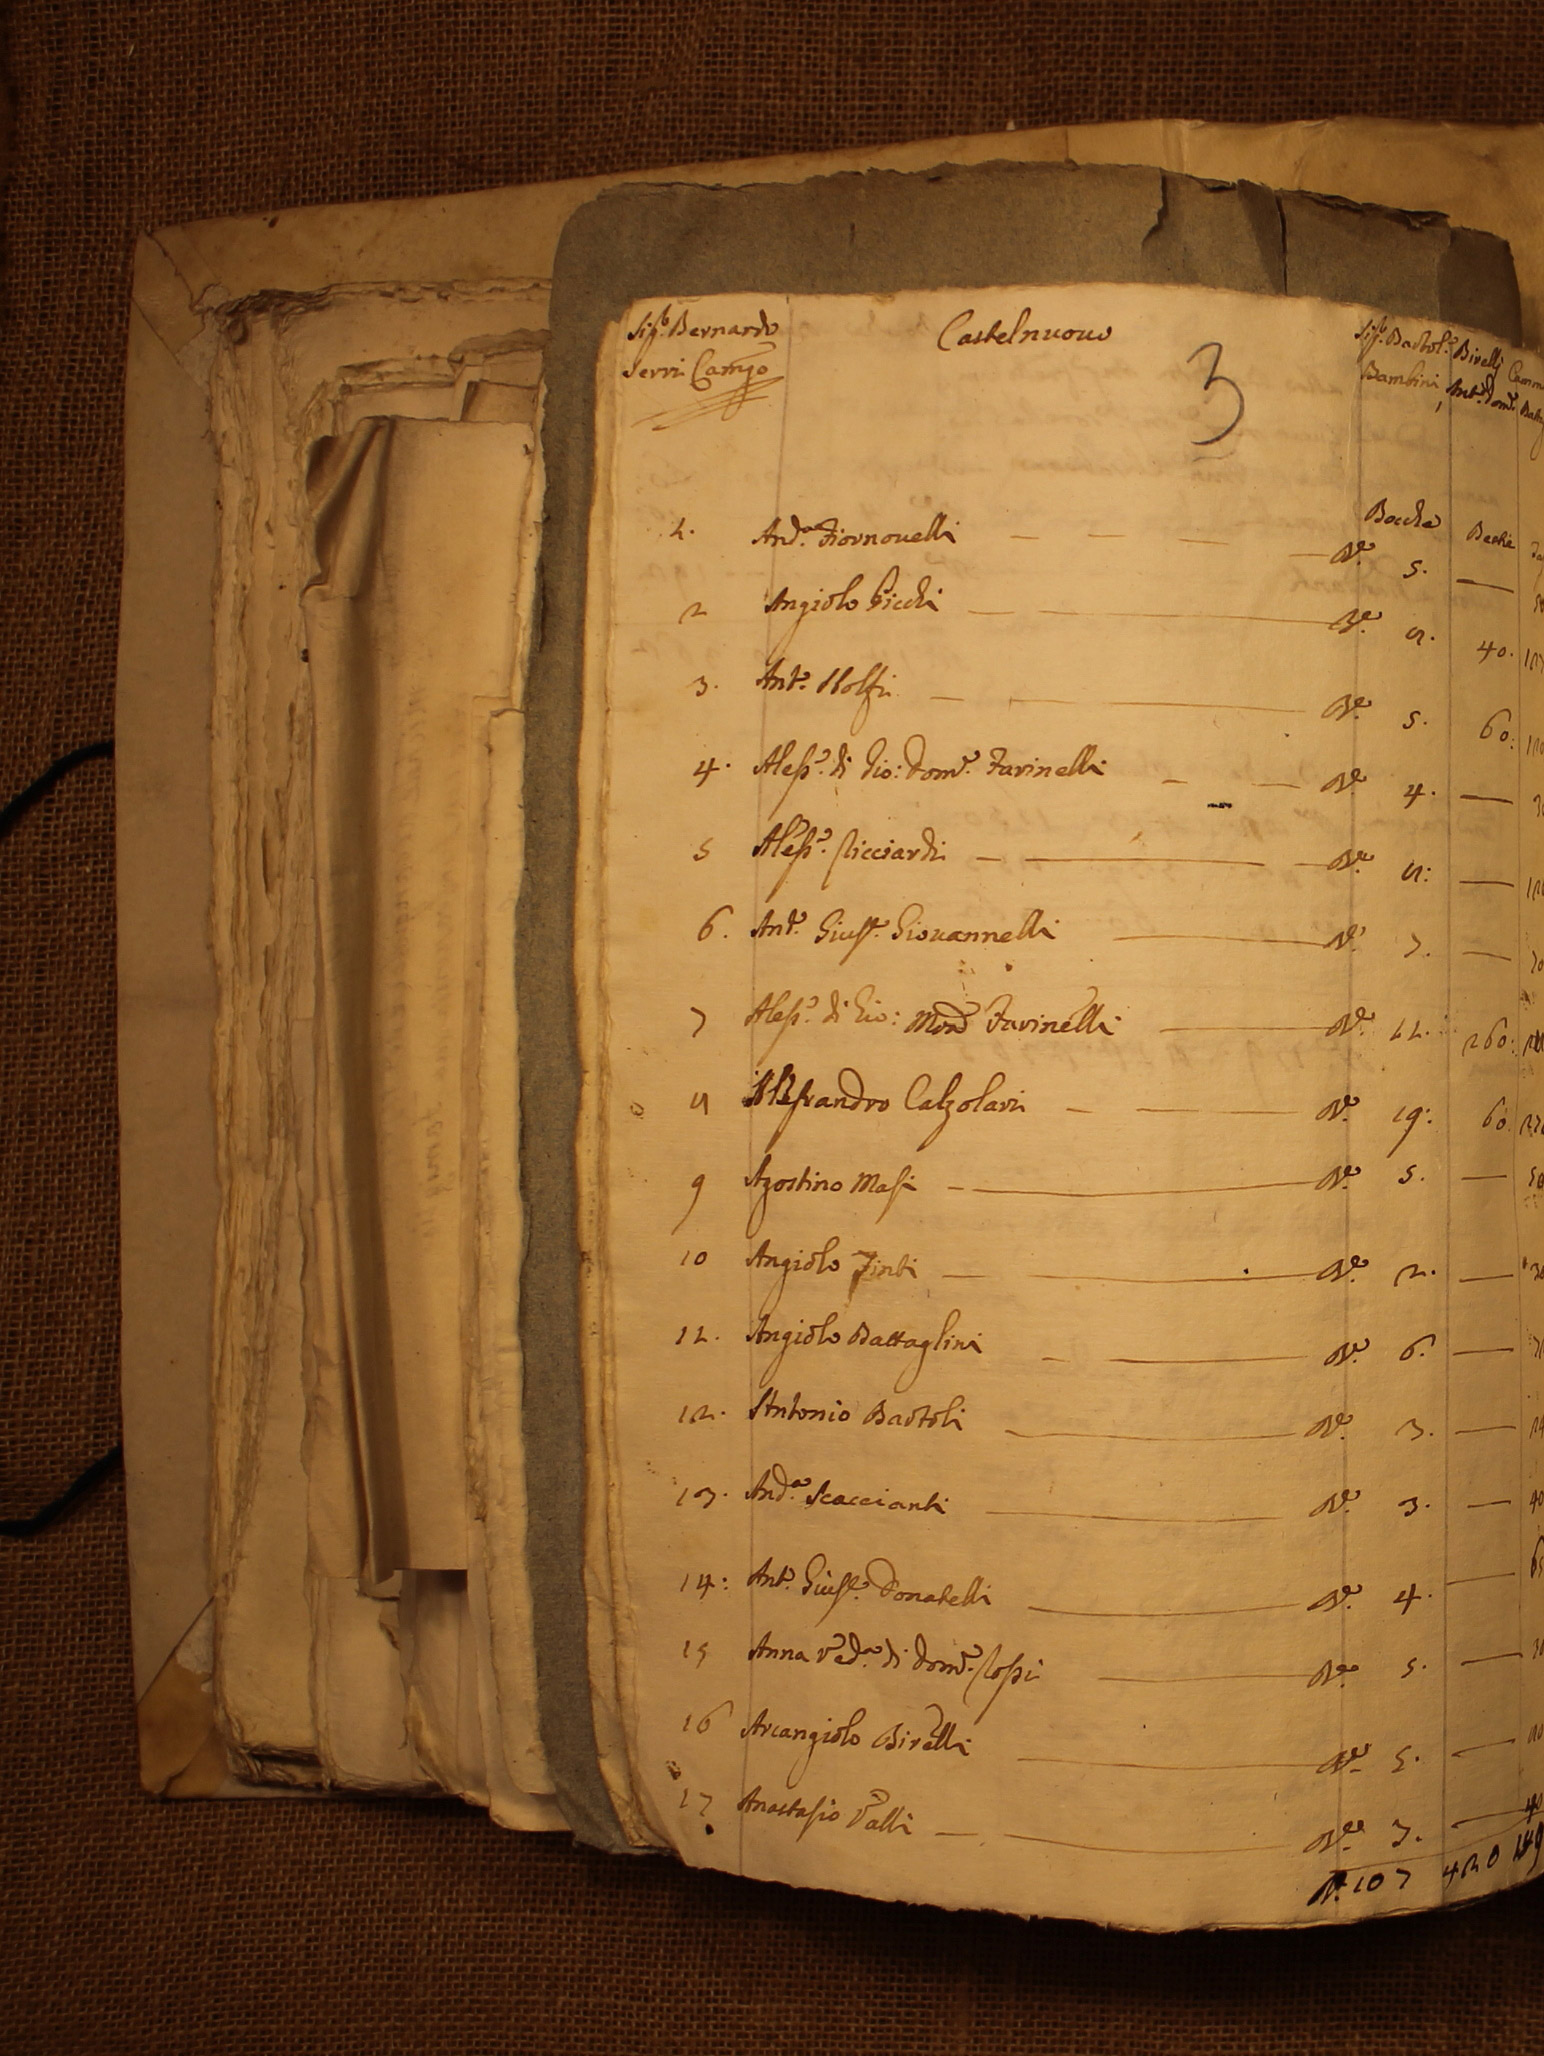 Sig.r Bernardo
Serri Camgo
Castelnuovo
3
Sig.r Bartol.o
Bambini
Birelli
Ant.o Dom.o
Bocche
Bestie
1. And.a Fiornovelli N.o 5.
2 Angiolo Picchi N.o 8. 40.
3. Ant.o Nolfi N.o 5. 60:
4. Aless.o di Gio: Dom.o Farinelli N.o 4.
5 Aless.o Ricciardi N.o 8:
6. Ant.o Gius.e Giovannelli N.o 7.
7 Aless.o di Gio: Mond Farinelli N.o 11. 260:
8 Alessandro Calzolari N.o 19: 60
9 Agostino Masi N.o 5.
10 Angiolo Finti N.o 2.
11. Angiolo Battaglini N.o 6.
12. Antonio Bartoli N.o 3.
13. And.a Scaccianti N.o 3.
14: Ant.o Gius.e Donatelli N.o 4.
15 Anna Ved.a di Dom.o Rossi N.o 5.
16 Arcangiolo Birelli N.o 5.
17 Anastasio Valli N.o 3.
N. 107 420